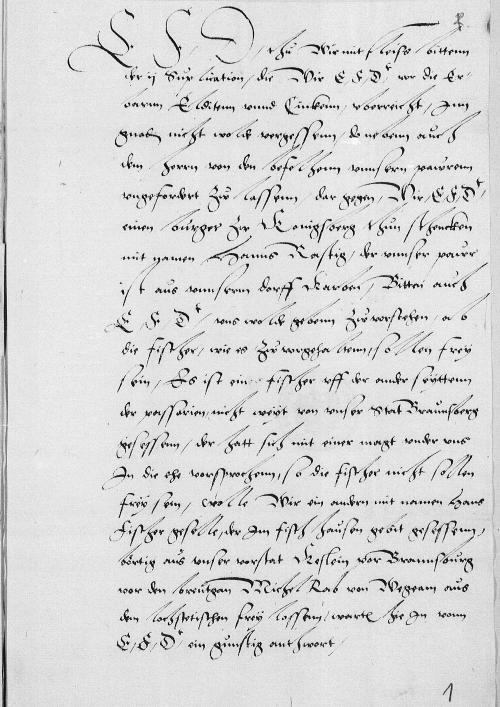 E F D, thu Wie mit fleiss bittenn
der ij Supplication, die Wir E F D vor die Er-
barnn Elditenn vnnd Linkenn, vberreicht, Inn
gnaden nicht wolde vergessenn, do nebenn auch
dem herrn von den befelhenn vnnsern pawrenn
vngefordert Zw lassenn, dar gegen, Wir, E F D,
einen burger Zw Konigsberg thun schencken
mit namen Hanns Rastig, der vnnser pawr
ist aus vnnserm dorff Karben, Bitten auch
E, F, D, vns wolde gebenn Zw vorstehen, a b
die fischer, wie es Zw vorgehaltenn, sollen frey
sein, Es ist eine fischer vff der ander seyttenn
der passarien, nicht weyt von vnser Stat Braunsberg
gesessenn, der hatt sich mit einer magt vnder vns
In die ehe vorsprochenn, so die fischer nicht sollen
frey sein, wolle Wir ein andern mit namen Hans
Fischer geselle, der Im fisch hausen gebit gesessenn,
bortig aus vnser vorstat Keslein vor Braunsburg
vor den breutgan Michel Rab von Wegeam aus
den lochstetischen frey lossenn, wartt hie In vonn
E, F, D, ein gunstig anthwort,
1